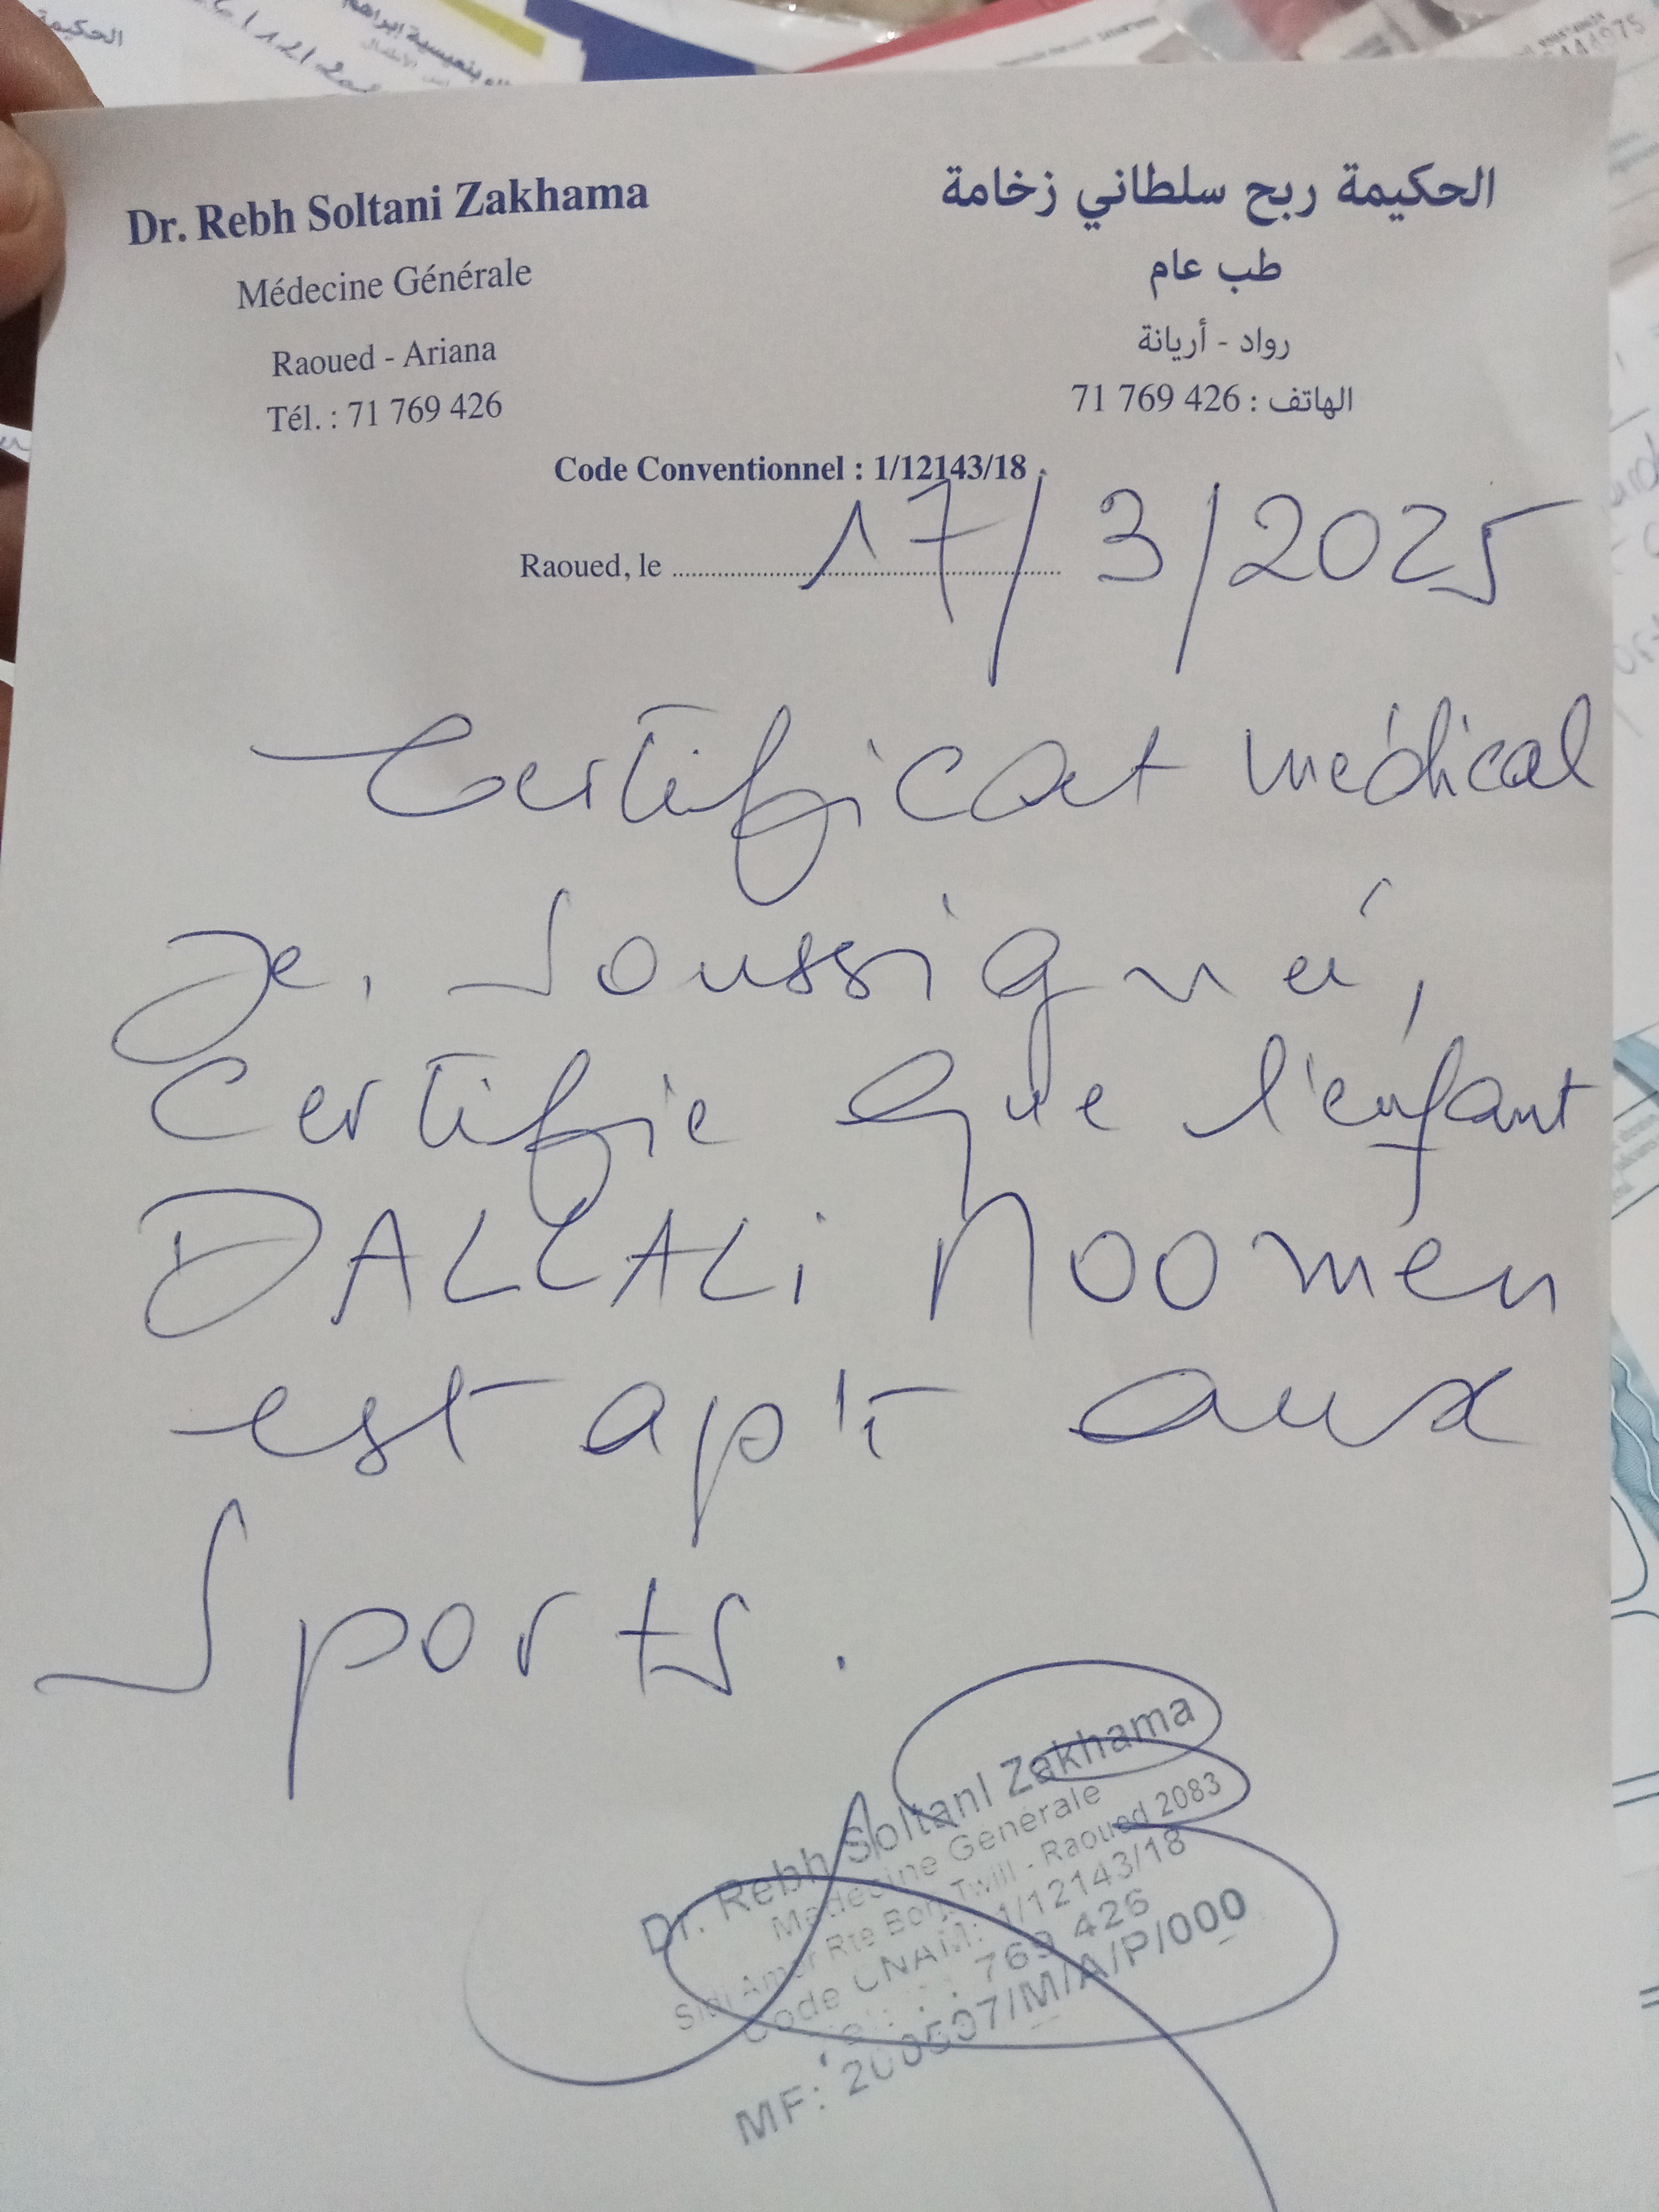 Dr. Rebh Soltani Zakhama
Médecine Générale
Raoued - Ariana
Tél. : 71 769 426
الحكيمة ربح سلطاني زخامة
طب عام
رواد - أريانة
الهاتف : 426 769 71
Code Conventionnel : 1/12143/18
Raoued, le 17/3/2025
Certificat médical
Je, soussigné,
Certifie que l'enfant
DALLALi Noomen
est apt aux
Sports.
Dr. Rebh Soltani Zakhama
Médecine Générale
Sidi Amor Rte Borj Twill - Raoued 2083
Code CNAM: 1/12143/18
769 426
MF: /M/A/P/000